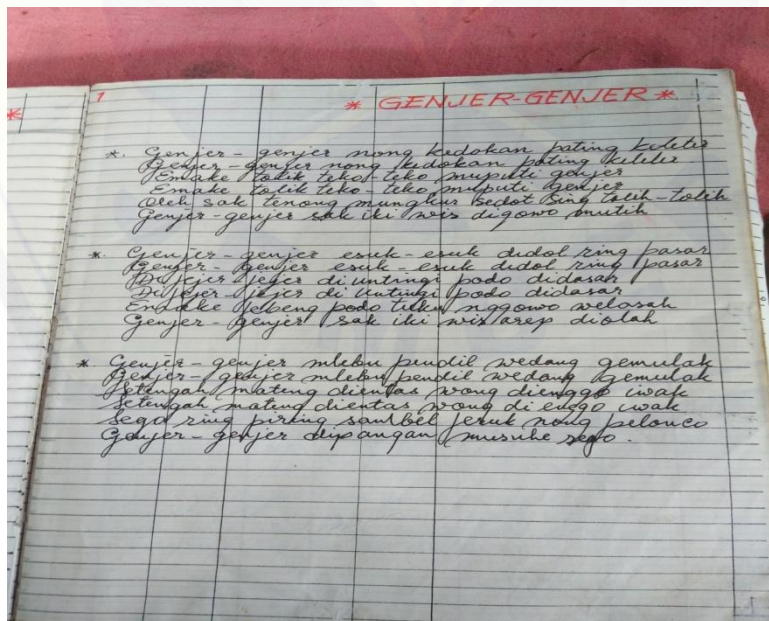 *
1
* GENJER-GENJER *
*. Genjer - genjer nong kedokan pating keleler
Genjer - genjer nong kedokan pating keleler
Emake tolik teko - teko muputi genjer
Emake tolik teko - teko muputi genjer
Oleh sak tenong mungkur sedot sing tolih - tolih
Genjer - genjer sak iki wis digowo mulih
*. Genjer - genjer esuk - esuk didol ring pasar
Genjer - genjer esuk - esuk didol ring pasar
Dijejer jejer di untingi podo didasar
Dijejer - jejer di untingi podo didasar
Emake jebeng podo tuku nggowo welasah
Genjer - genjer sak iki wis arep diolah
* Genjer - genjer mlebu pendil wedang gemulak
Genjer - genjer mlebu pendil wedang gemulak
Setengah mateng dientas wong dienggo iwak
Setengah mateng dientas wong di enggo iwak
Sego ring piring sambel jeruk nong pelonco
Genjer - genjer dipangan musuhe sego .